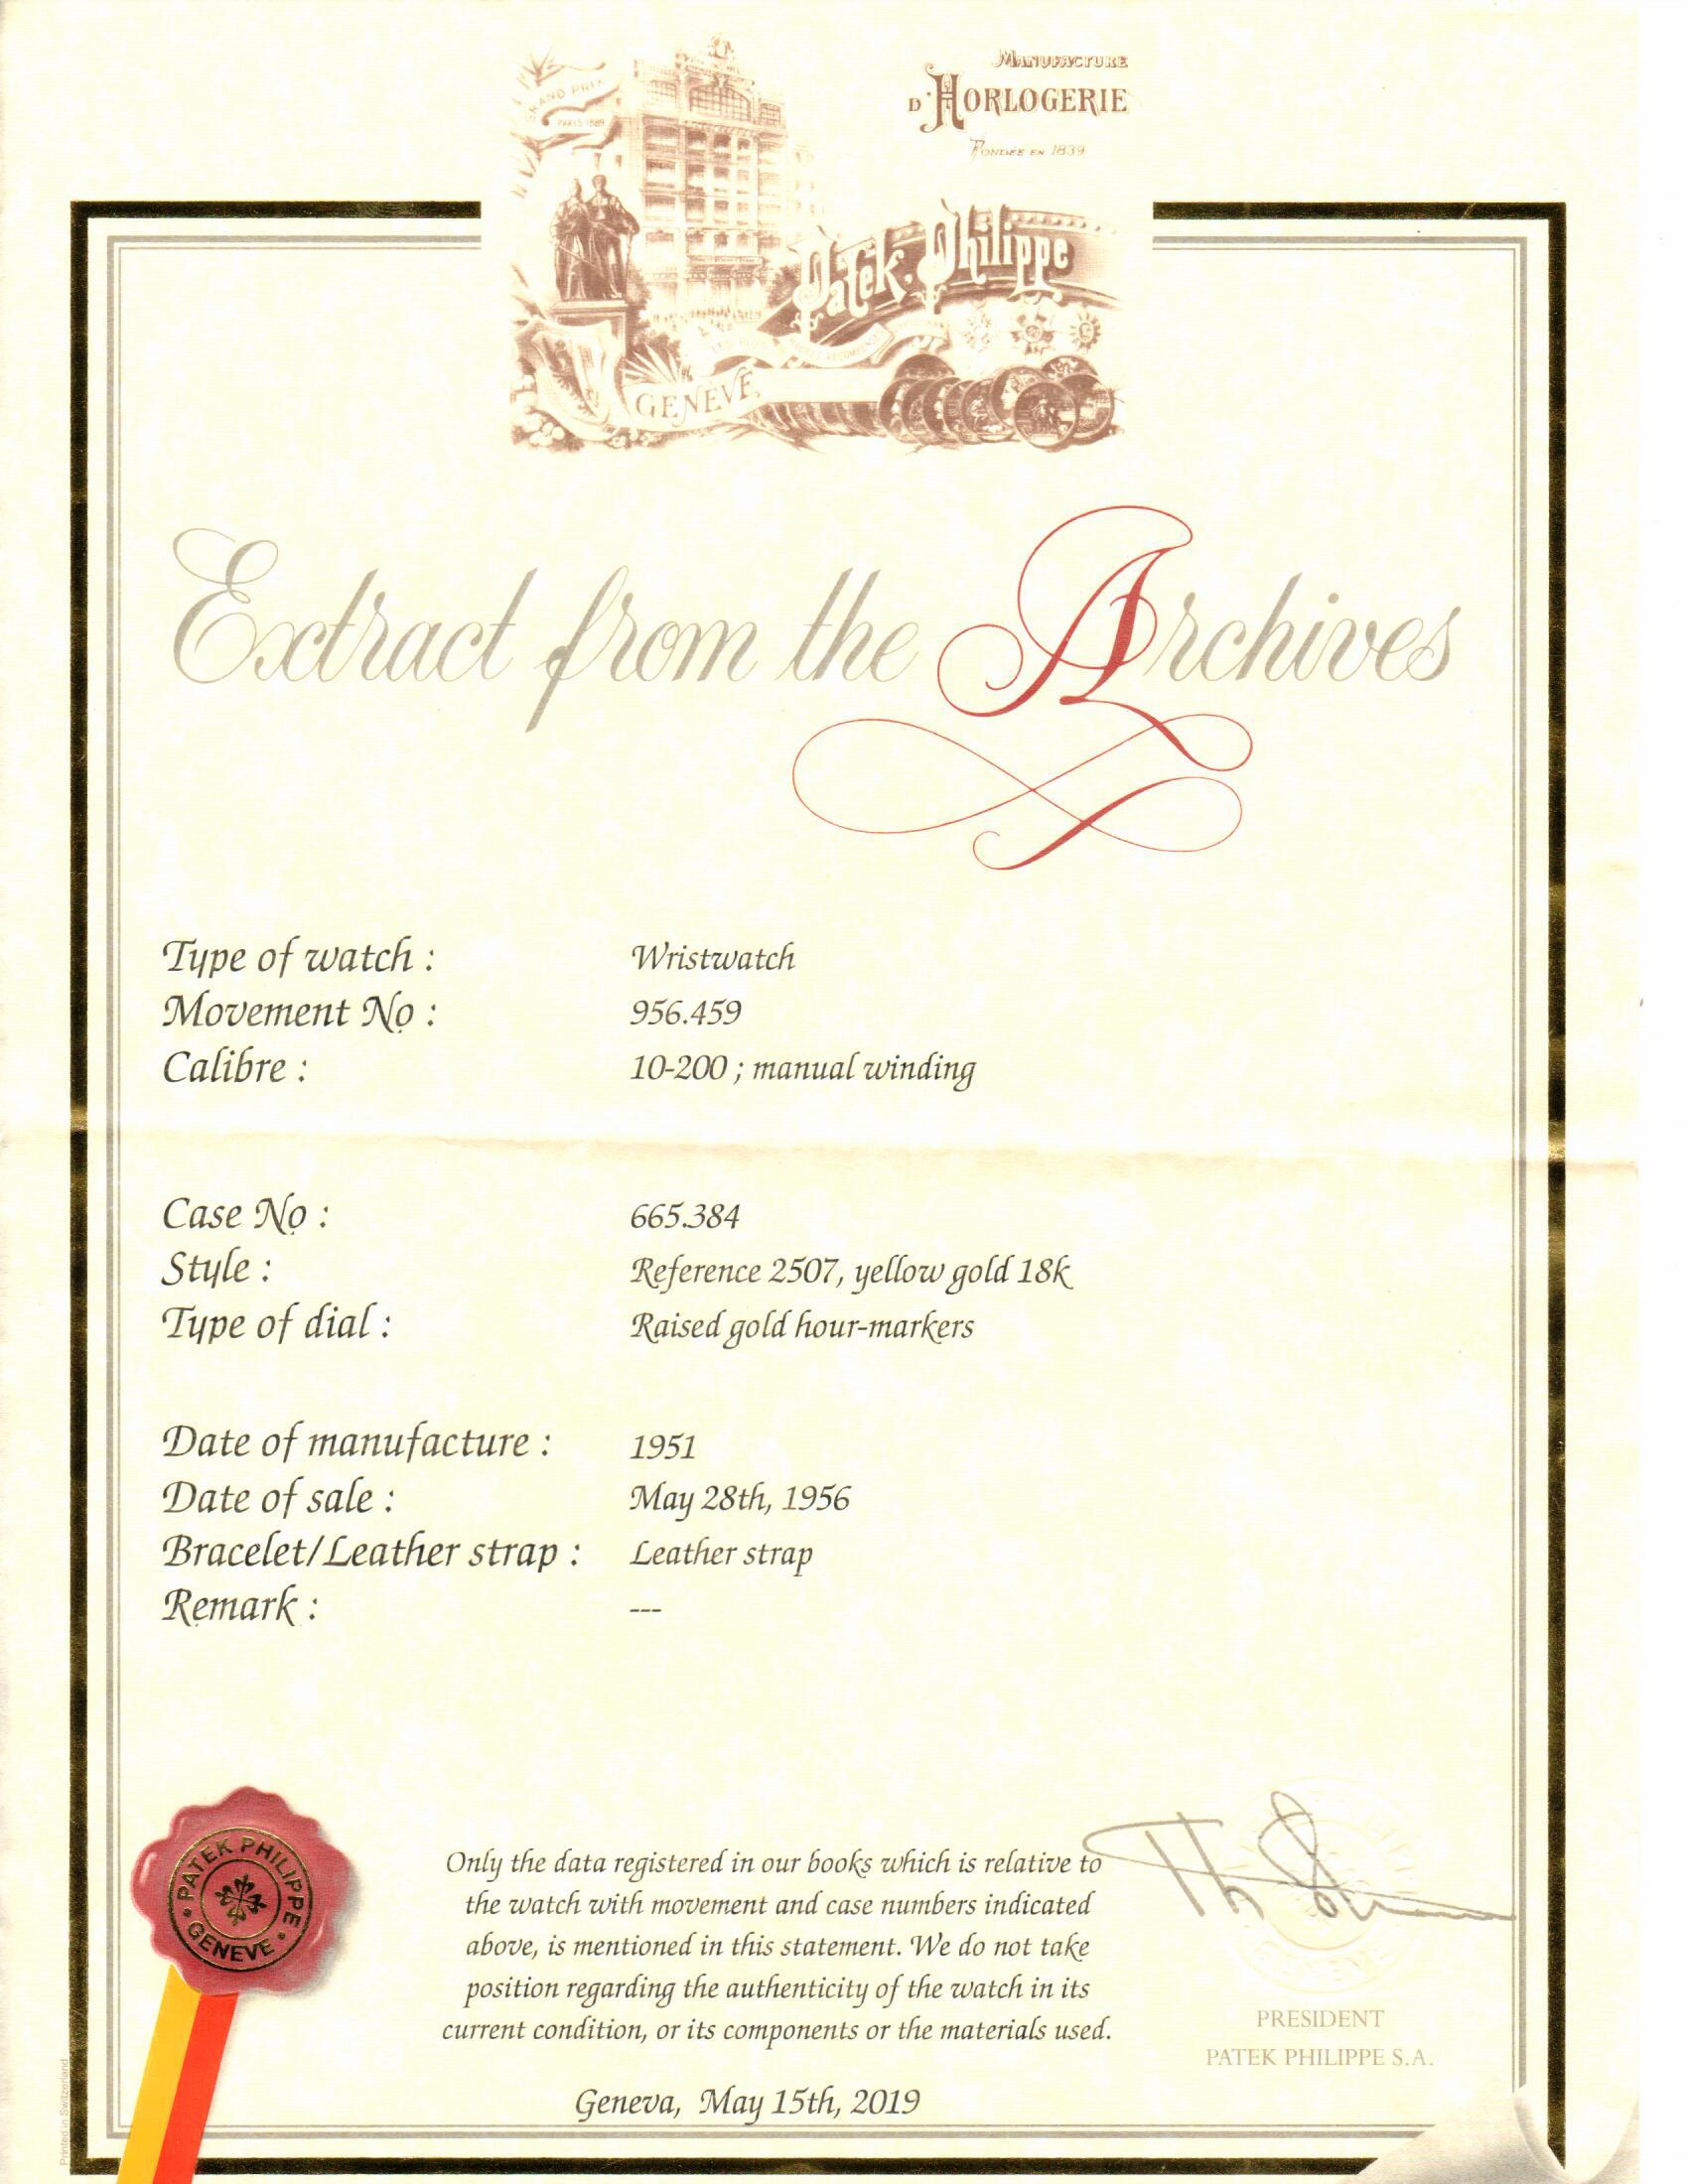 MANUFACTURE
D'HORLOGERIE
FONDÉE EN 1839
GRAND PRIX
PARIS 1889
Patek Philippe
GENÈVE
Extract from the Archives
Type of watch : Wristwatch
Movement No : 956.459
Calibre : 10-200 ; manual winding
Case No : 665.384
Style : Reference 2507, yellow gold 18k
Type of dial : Raised gold hour-markers
Date of manufacture : 1951
Date of sale : May 28th, 1956
Bracelet/Leather strap : Leather strap
Remark : ---
PATEK PHILIPPE
GENEVE
Only the data registered in our books which is relative to
the watch with movement and case numbers indicated
above, is mentioned in this statement. We do not take
position regarding the authenticity of the watch in its
current condition, or its components or the materials used.
PRESIDENT
PATEK PHILIPPE S.A.
Geneva, May 15th, 2019
Printed in Switzerland